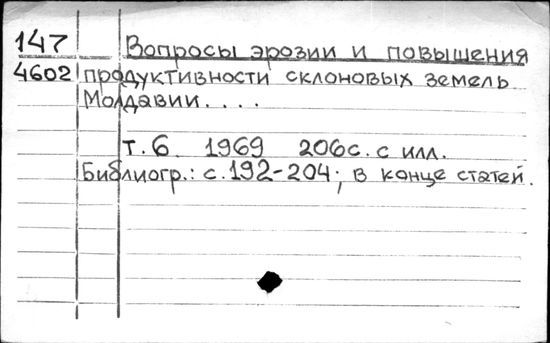 147 Вопросы эрозии и повышения
4602 продуктивности склоновых земель
Молдавии. . . .
т. 6 1969 206с. с илл.
Библиогр.: с. 192-204; в конце статей.